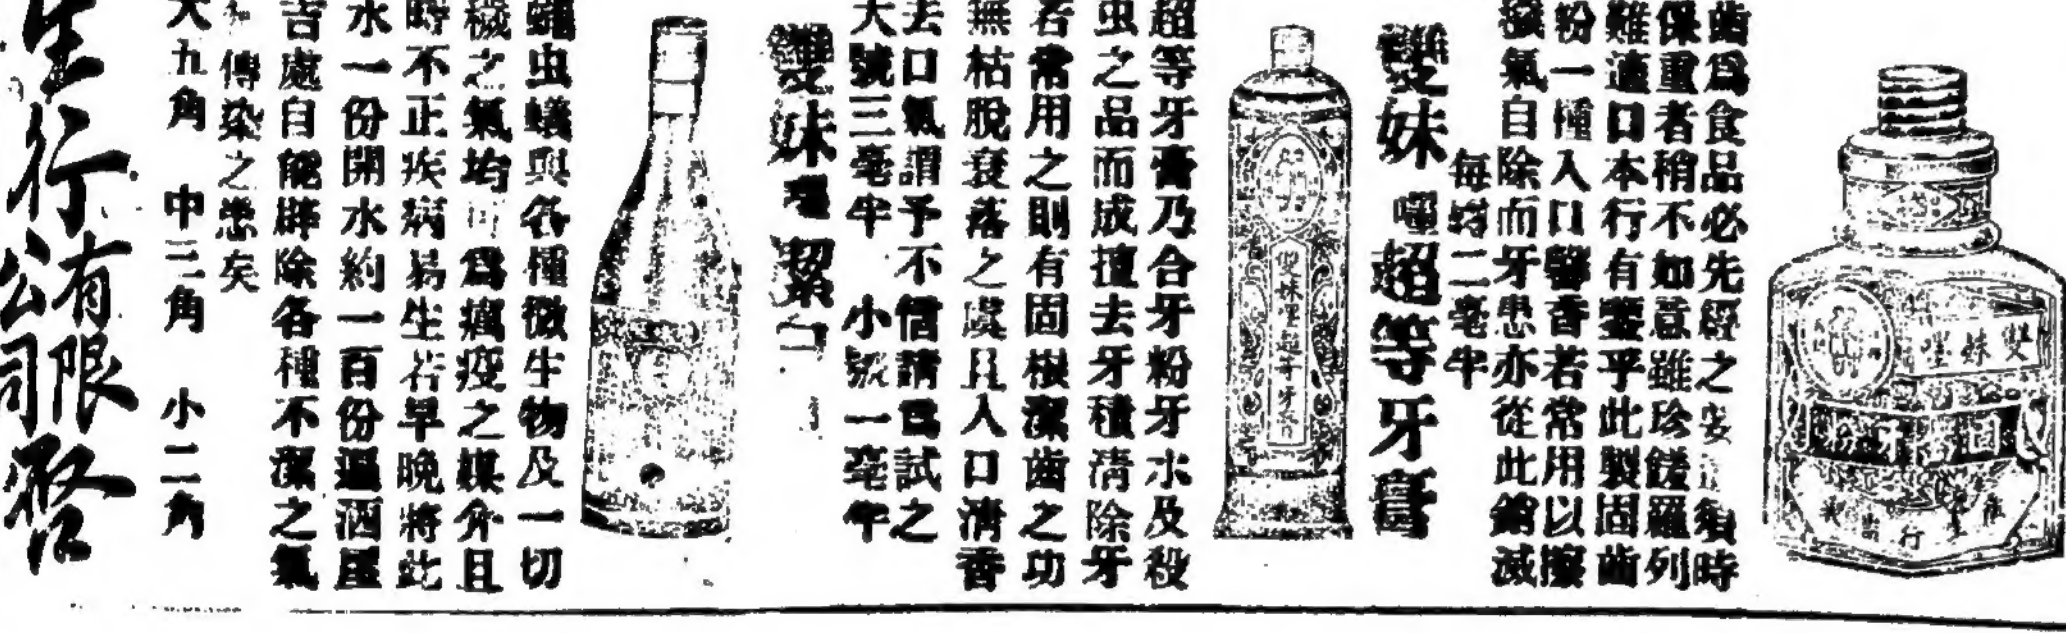 齒爲食品必先經之要道須時
保重者稍不如意雖珍饈羅列
難適口本行有鑒乎此製固齒
粉一種入口馨香若常用以擦
穢氣自除而牙患亦從此銷滅
每罇二毫半
雙妹嚜超等牙膏
超等牙膏乃合牙粉牙水及殺
虫之品而成擅去牙積清除牙
者常用之則有固根潔齒之功
無枯脫衰落之虞且入口清香
去口氣謂予不信請爲試之
大號三毫半 小號一毫半
雙妹嚜潔
蠅虫蟻與各種微生物及一切
穢之氣均可爲癘疫之媒介且
時不正疾病易生若早晚將此
水一份開水約一百份遍洒屋
吉處自能辟除各種不潔之氣
傳染之患矣
大五角 中三角 小二角
生行有限公司啓
雙妹嚜
雙妹嚜超等牙膏